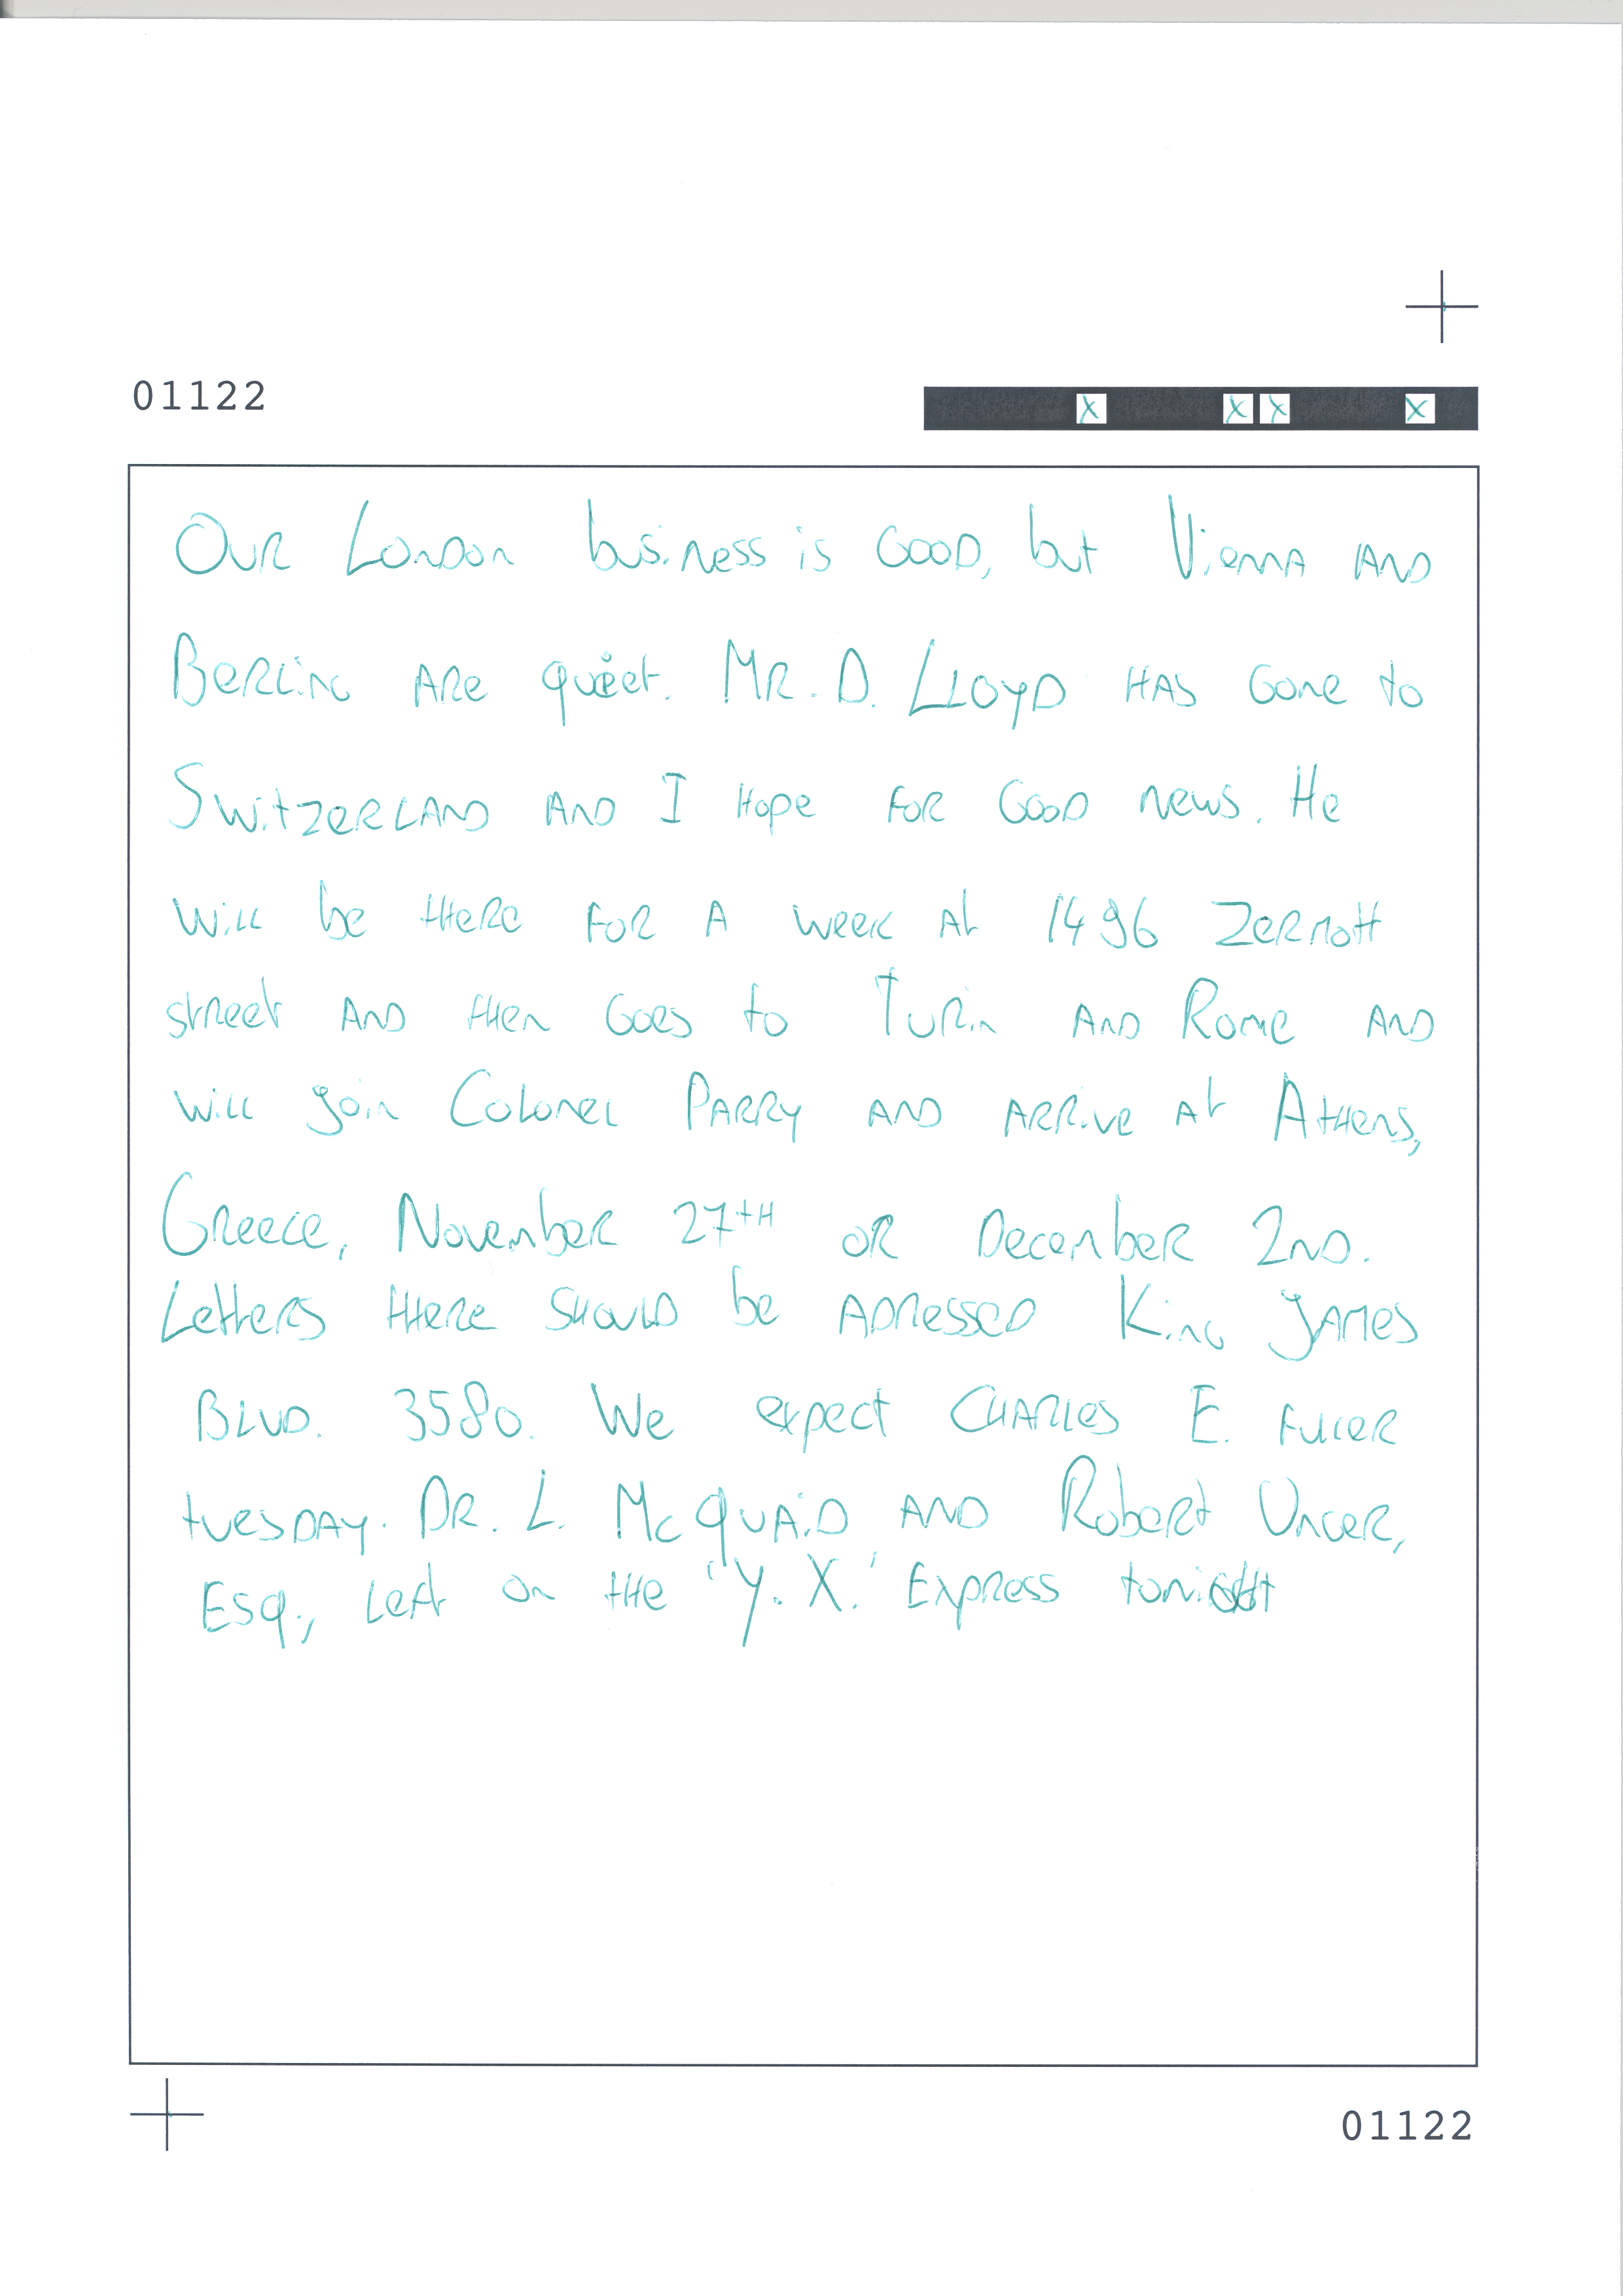 01122
Our London business is Good, but Vienna and
Berling are quiet. Mr. D. Lloyd has Gone to
Switzerland and I hope for Good news. He
will be there for a week at 1496 Zermott
street and then Goes to Turin and Rome and
will join Colonel Parry and arrive at Athens,
Greece, November 27th or December 2nd.
Letters there should be adressed King James
Blvd. 3580. We expect Charles E. Fuller
tuesday. Dr. L. McQuaid and Robert Unger,
Esq., left on the 'Y. X.' Express tonight
01122